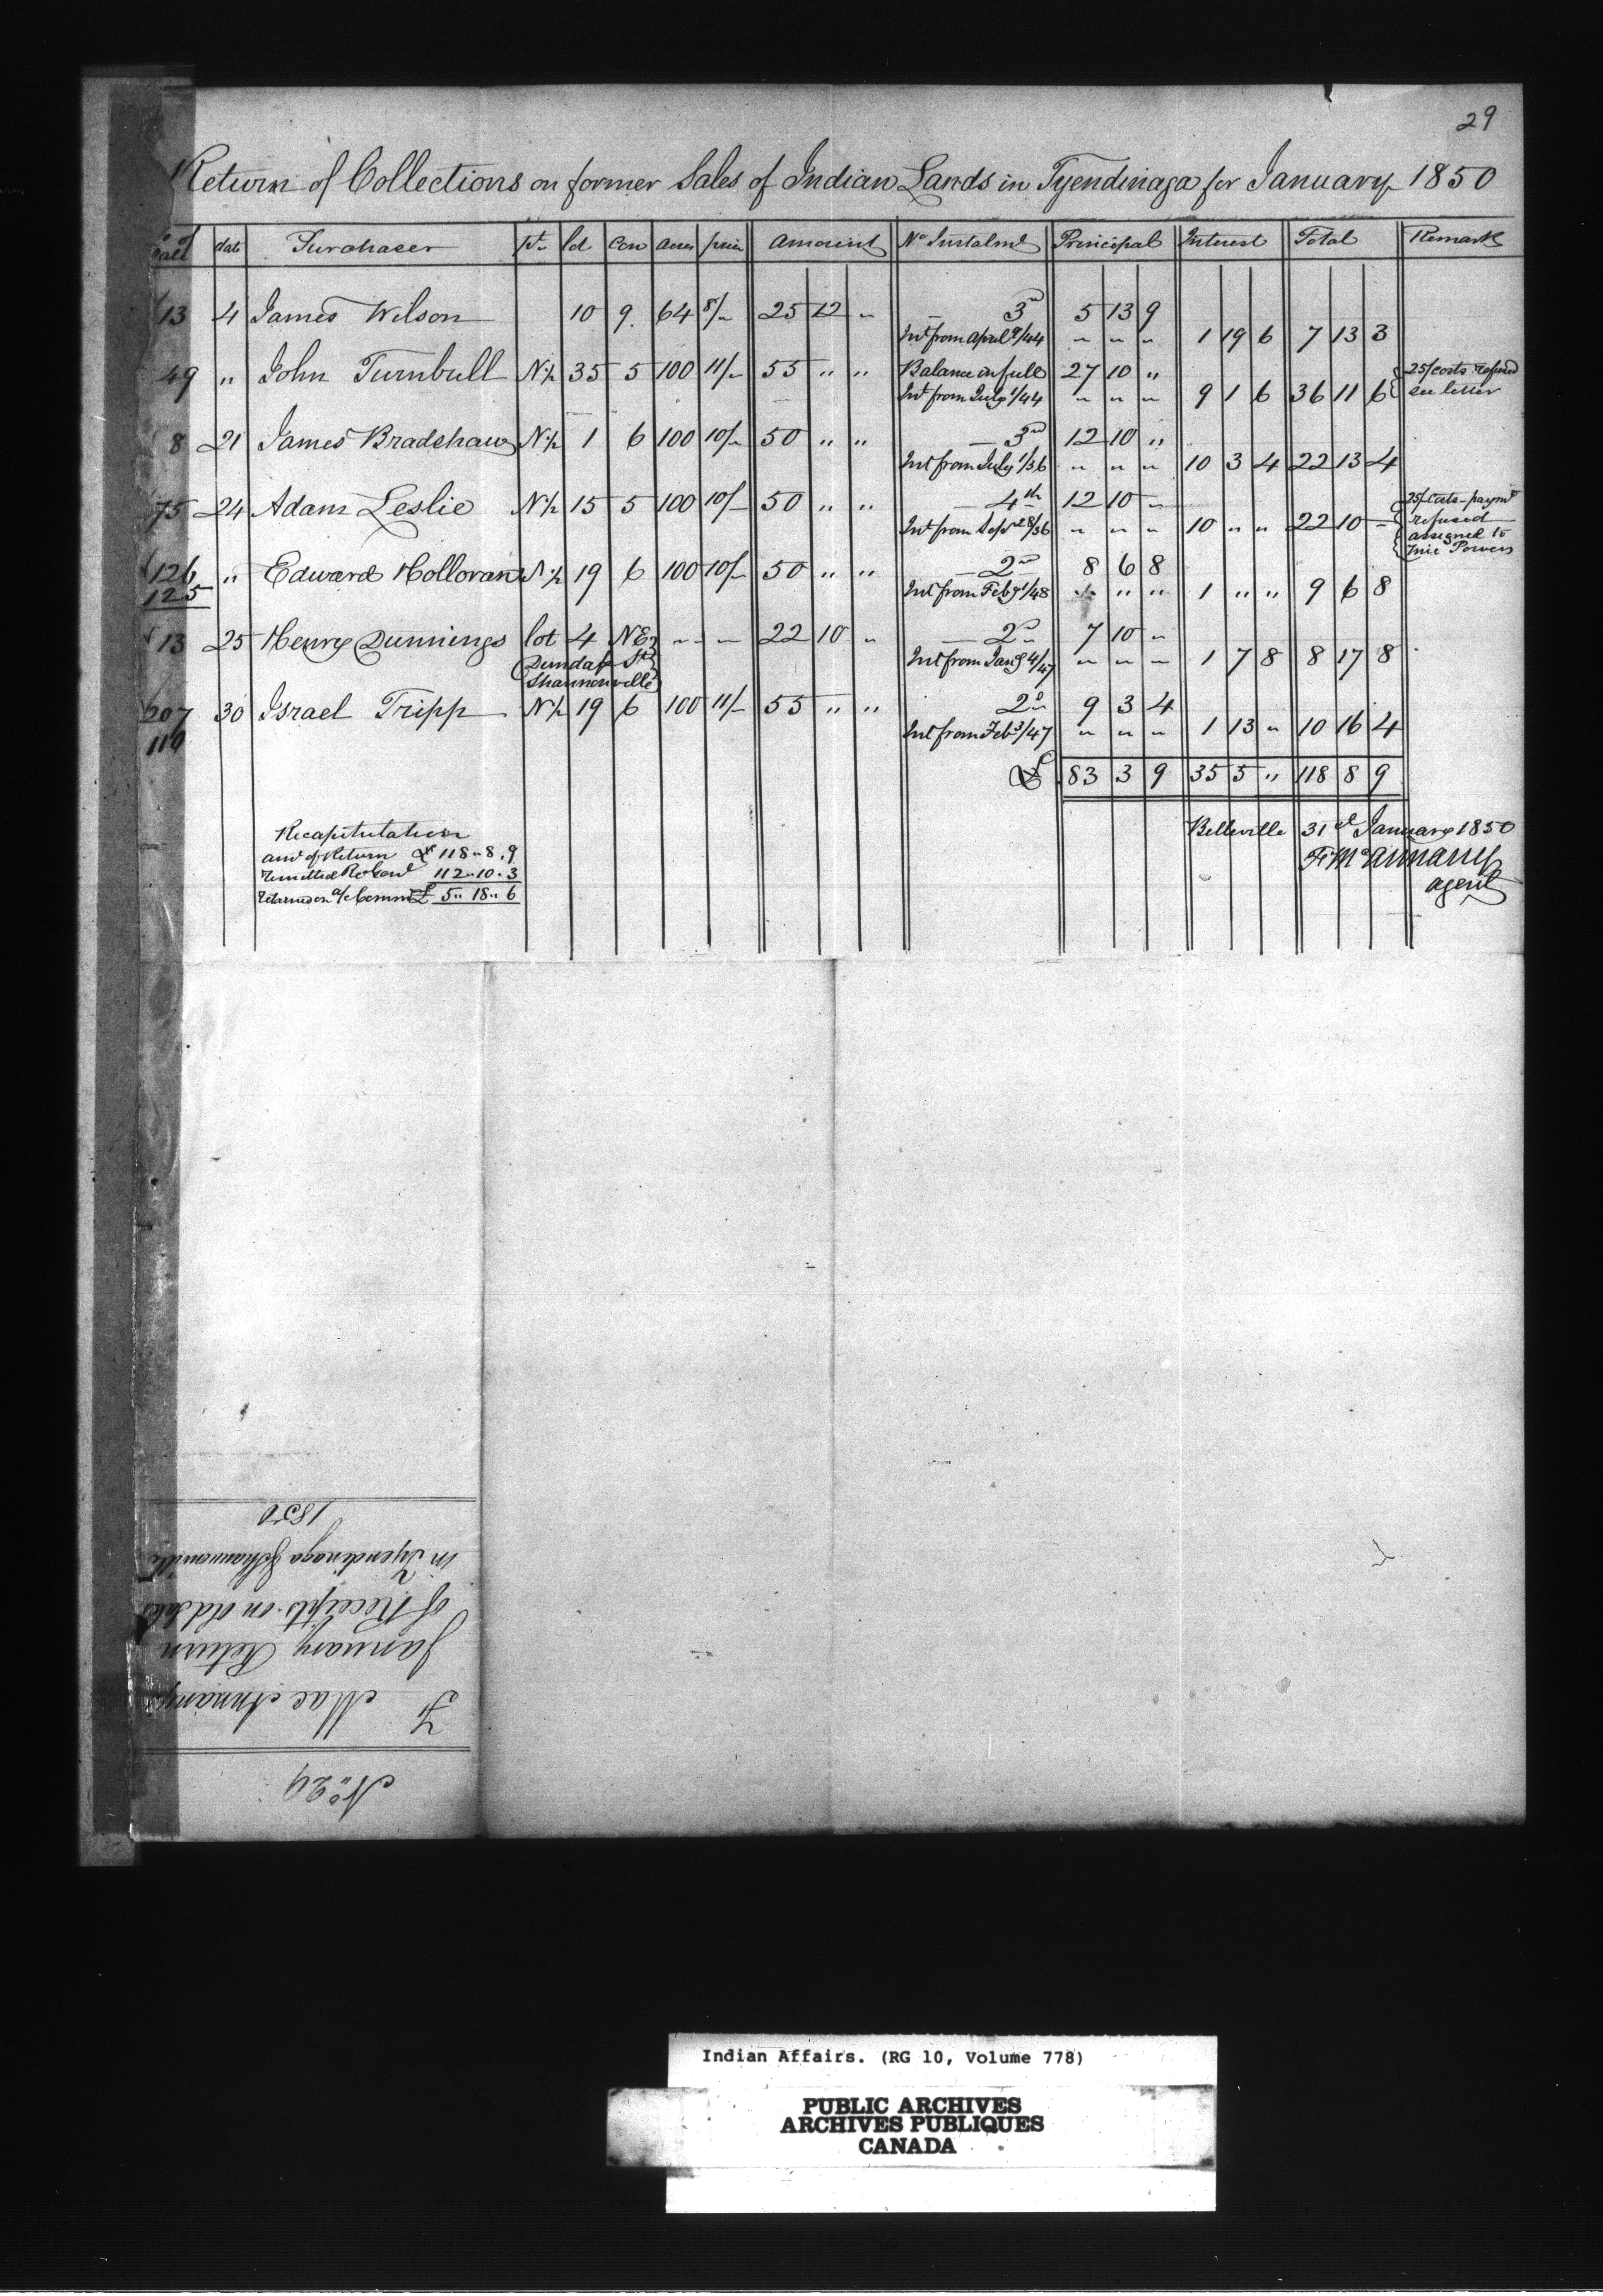 29
Return of Collections on former Sales of Indian Lands in Tyendinaga for January 1850
No of Sale date Purchaser pt. lot Con Acres price Amount No Instalmt Principal Interest Total Remark
13 4 James Wilson 10 9. 64 8/- 25 12 " — 3rd 5 13 9
Int from April 9/44 " " " 1 19 6 7 13 3
49 " John Turnbull N½ 35 5 100 11/- 55 " " Balance in full 27 10 " 25/ costs refused
Int from July 1/44 " " " 9 1 6 36 11 6 see letter
8 21 James Bradshaw N½ 1 6 100 10/- 50 " " — 3rd 12 10 "
Int from July 1/36 " " " 10 3 4 22 13 4
75 24 Adam Leslie N½ 15 5 100 10/- 50 " " — 4th 12 10 " 25/ Costs - paymt
Int from Sept 28/36 " " " 10 " " 22 10 - refused
assigned to
Powers
126 " Edward Holloran S½ 19 6 100 10/- 50 " " — 2nd 8 6 8
125 Int from Feby 1/48 " " " 1 " " 9 6 8
13 25 Henry Dunnings lot 4 NE " - — 22 10 " — 2nd 7 10 "
Dundas St Int from Jany 4/47 " " " 1 7 8 8 17 8
Shannonville
207 30 Israel Tripp N½ 19 6 100 11/- 55 " " 2d 9 3 4
110 Int from Feb 3/47 " " " 1 13 " 10 16 4
£ 83 3 9 35 5 " 118 8 9
Recapitulation
amt of Return £ 118 " 8 , 9
remitted Rr Genl 112 " 10 " 3
Retained on a/c Commn £ 5 " 18 " 6
Belleville 31st January 1850
F. McAnnany
agent
No 29
F. MacAnnany
January Return
of Receipts on old Sales
in Tyendinaga & Shannonville
1850
Indian Affairs. (RG 10, Volume 778)
PUBLIC ARCHIVES
ARCHIVES PUBLIQUES
CANADA